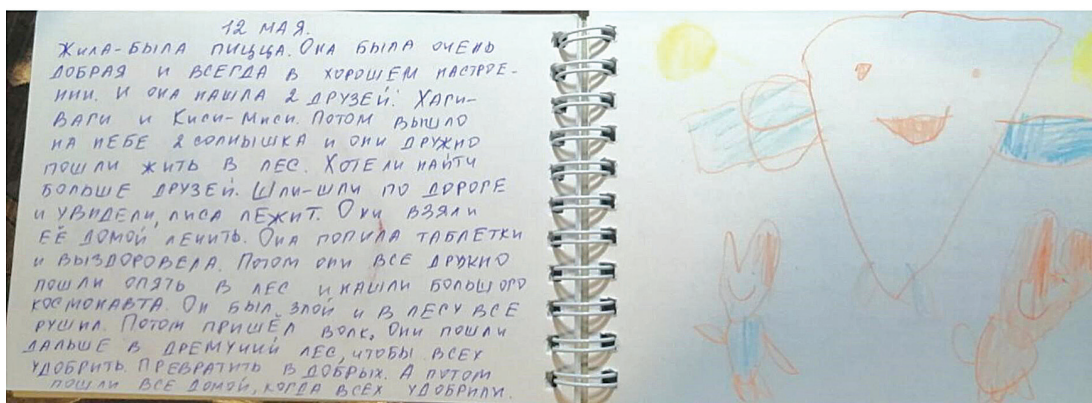 12 МАЯ.
ЖИЛА-БЫЛА ПИЦЦА. ОНА БЫЛА ОЧЕНЬ
ДОБРАЯ И ВСЕГДА В ХОРОШЕМ НАСТРОЕ-
НИИ. И ОНА НАШЛА 2 ДРУЗЕЙ: ХАГИ-
ВАГИ И КИСИ-МИСИ. ПОТОМ ВЫШЛО
НА НЕБЕ 2 СОЛНЫШКА И ОНИ ДРУЖНО
ПОШЛИ ЖИТЬ В ЛЕС. ХОТЕЛИ НАЙТИ
БОЛЬШЕ ДРУЗЕЙ. ШЛИ-ШЛИ ПО ДОРОГЕ
И УВИДЕЛИ, ЛИСА ЛЕЖИТ. ОНИ ВЗЯЛИ
ЕЁ ДОМОЙ ЛЕЧИТЬ. ОНА ПОПИЛА ТАБЛЕТКИ
И ВЫЗДОРОВЕЛА. ПОТОМ ОНИ ВСЕ ДРУЖНО
ПОШЛИ ОПЯТЬ В ЛЕС И НАШЛИ БОЛЬШОГО
КОСМОНАВТА. ОН БЫЛ ЗЛОЙ И В ЛЕСУ ВСЕ
РУШИЛ. ПОТОМ ПРИШЁЛ ВОЛК, ОНИ ПОШЛИ
ДАЛЬШЕ В ДРЕМУЧИЙ ЛЕС, ЧТОБЫ ВСЕХ
УДОБРИТЬ. ПРЕВРАТИТЬ В ДОБРЫХ. А ПОТОМ
ПОШЛИ ВСЕ ДОМОЙ, КОГДА ВСЕХ УДОБРИЛИ.